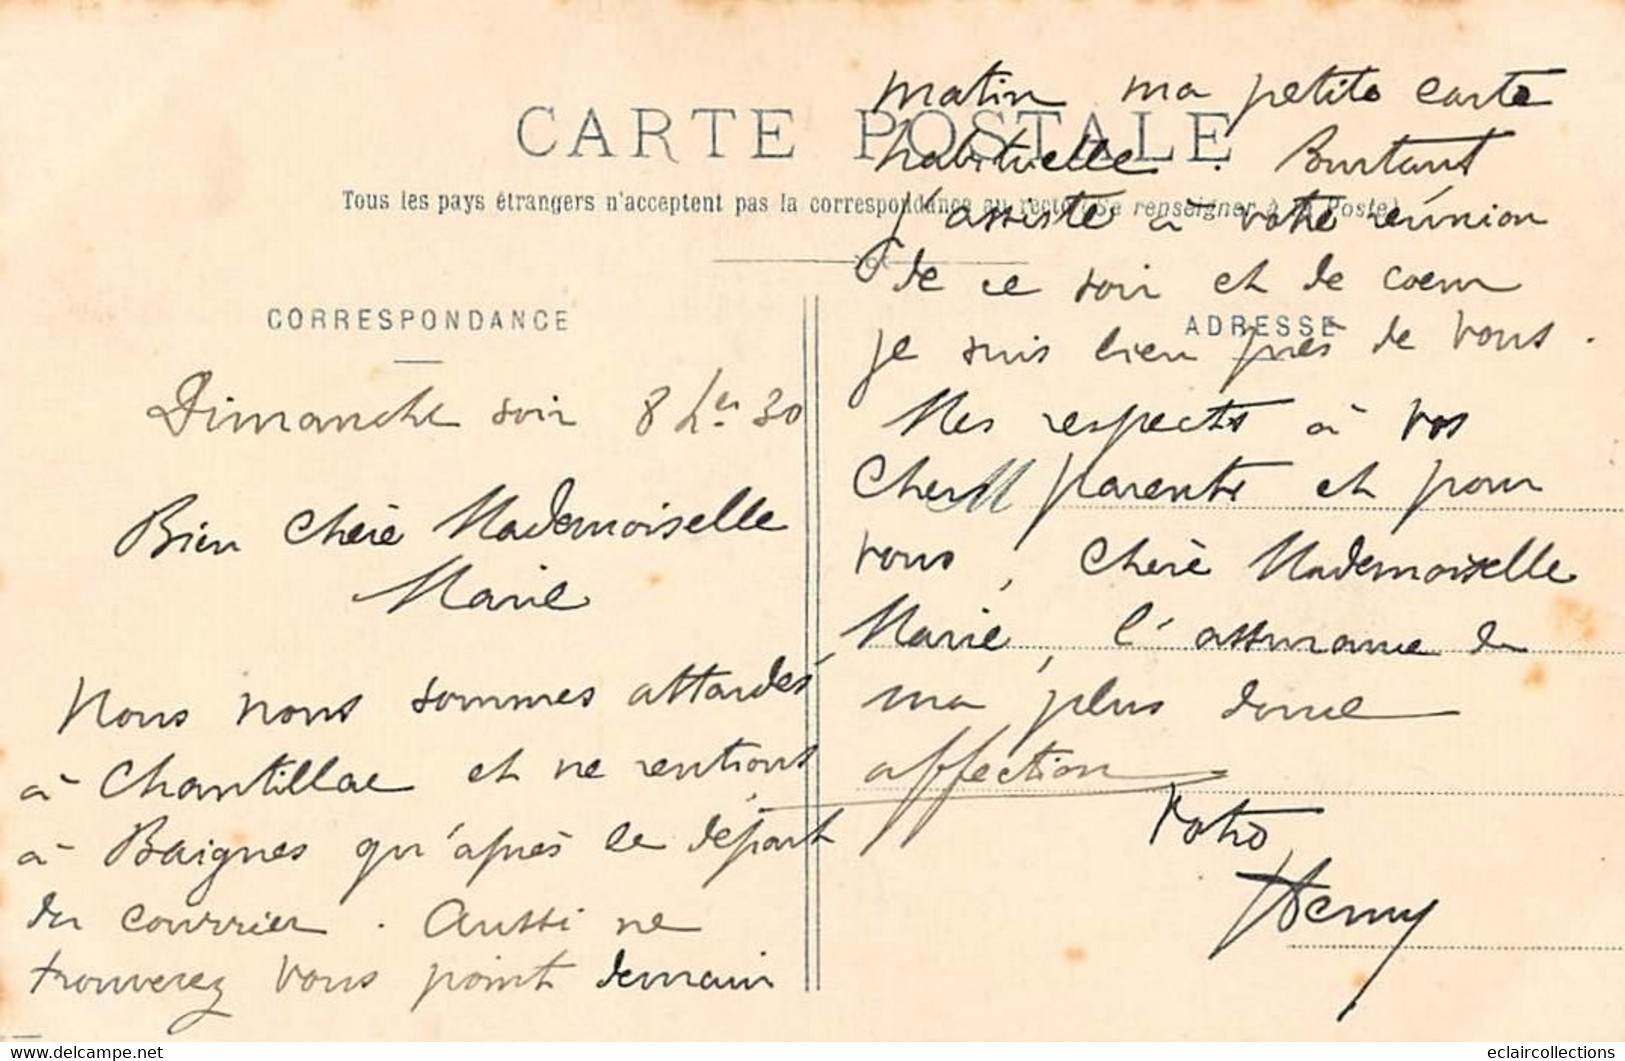 CARTE POSTALE
Tous les pays étrangers n'acceptent pas la correspondance au recto (Se renseigner à la Poste)
CORRESPONDANCE
Dimanche soir 8 hes 30
Bien Chère Mademoiselle
Marie
Nous nous sommes attardés
à Chantillac et ne rentrons
à Baignes qu'après le départ
du courrier. Aussi ne
trouverez vous point demain
matin ma petite carte
habituelle. Pourtant
j'assiste à votre réunion
de ce soir et de coeur
ADRESSE
je suis bien près de vous.
Mes respects à vos
Chers parents et pour
vous, Chère Mademoiselle
Marie, l'assurance de
ma plus douce
affection
Votre
Remy
eclaircollections
www.delcampe.net